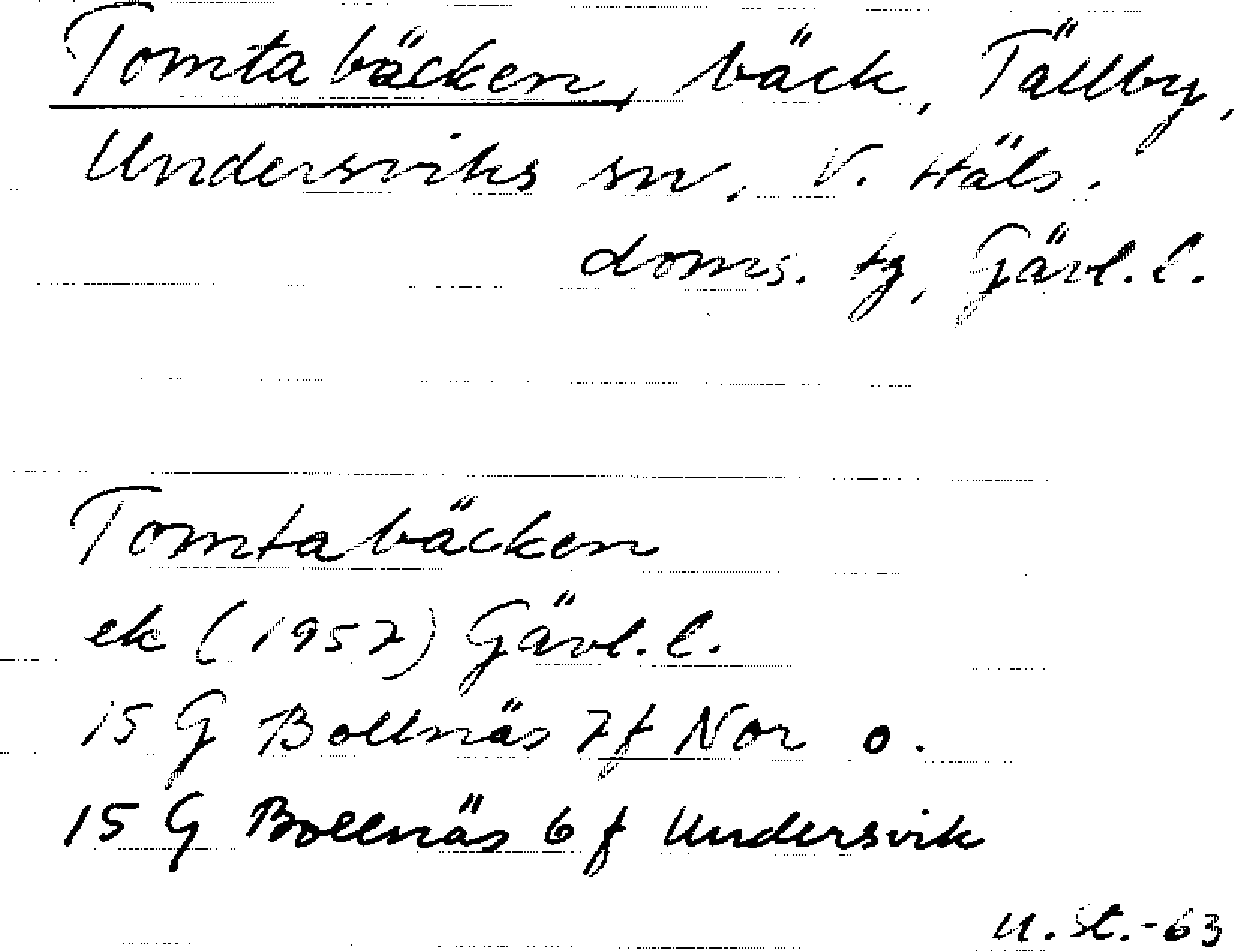 Tomtabäcken, bäck, Tällby,
Undersviks sn, V. Häls.
doms. tg, Gävl. l.
Tomtabäcken
ek (1957) Gävl. l.
15 G Bollnäs 7f Nor o.
15 G Bollnäs 6f Undersvik
U. St. -63